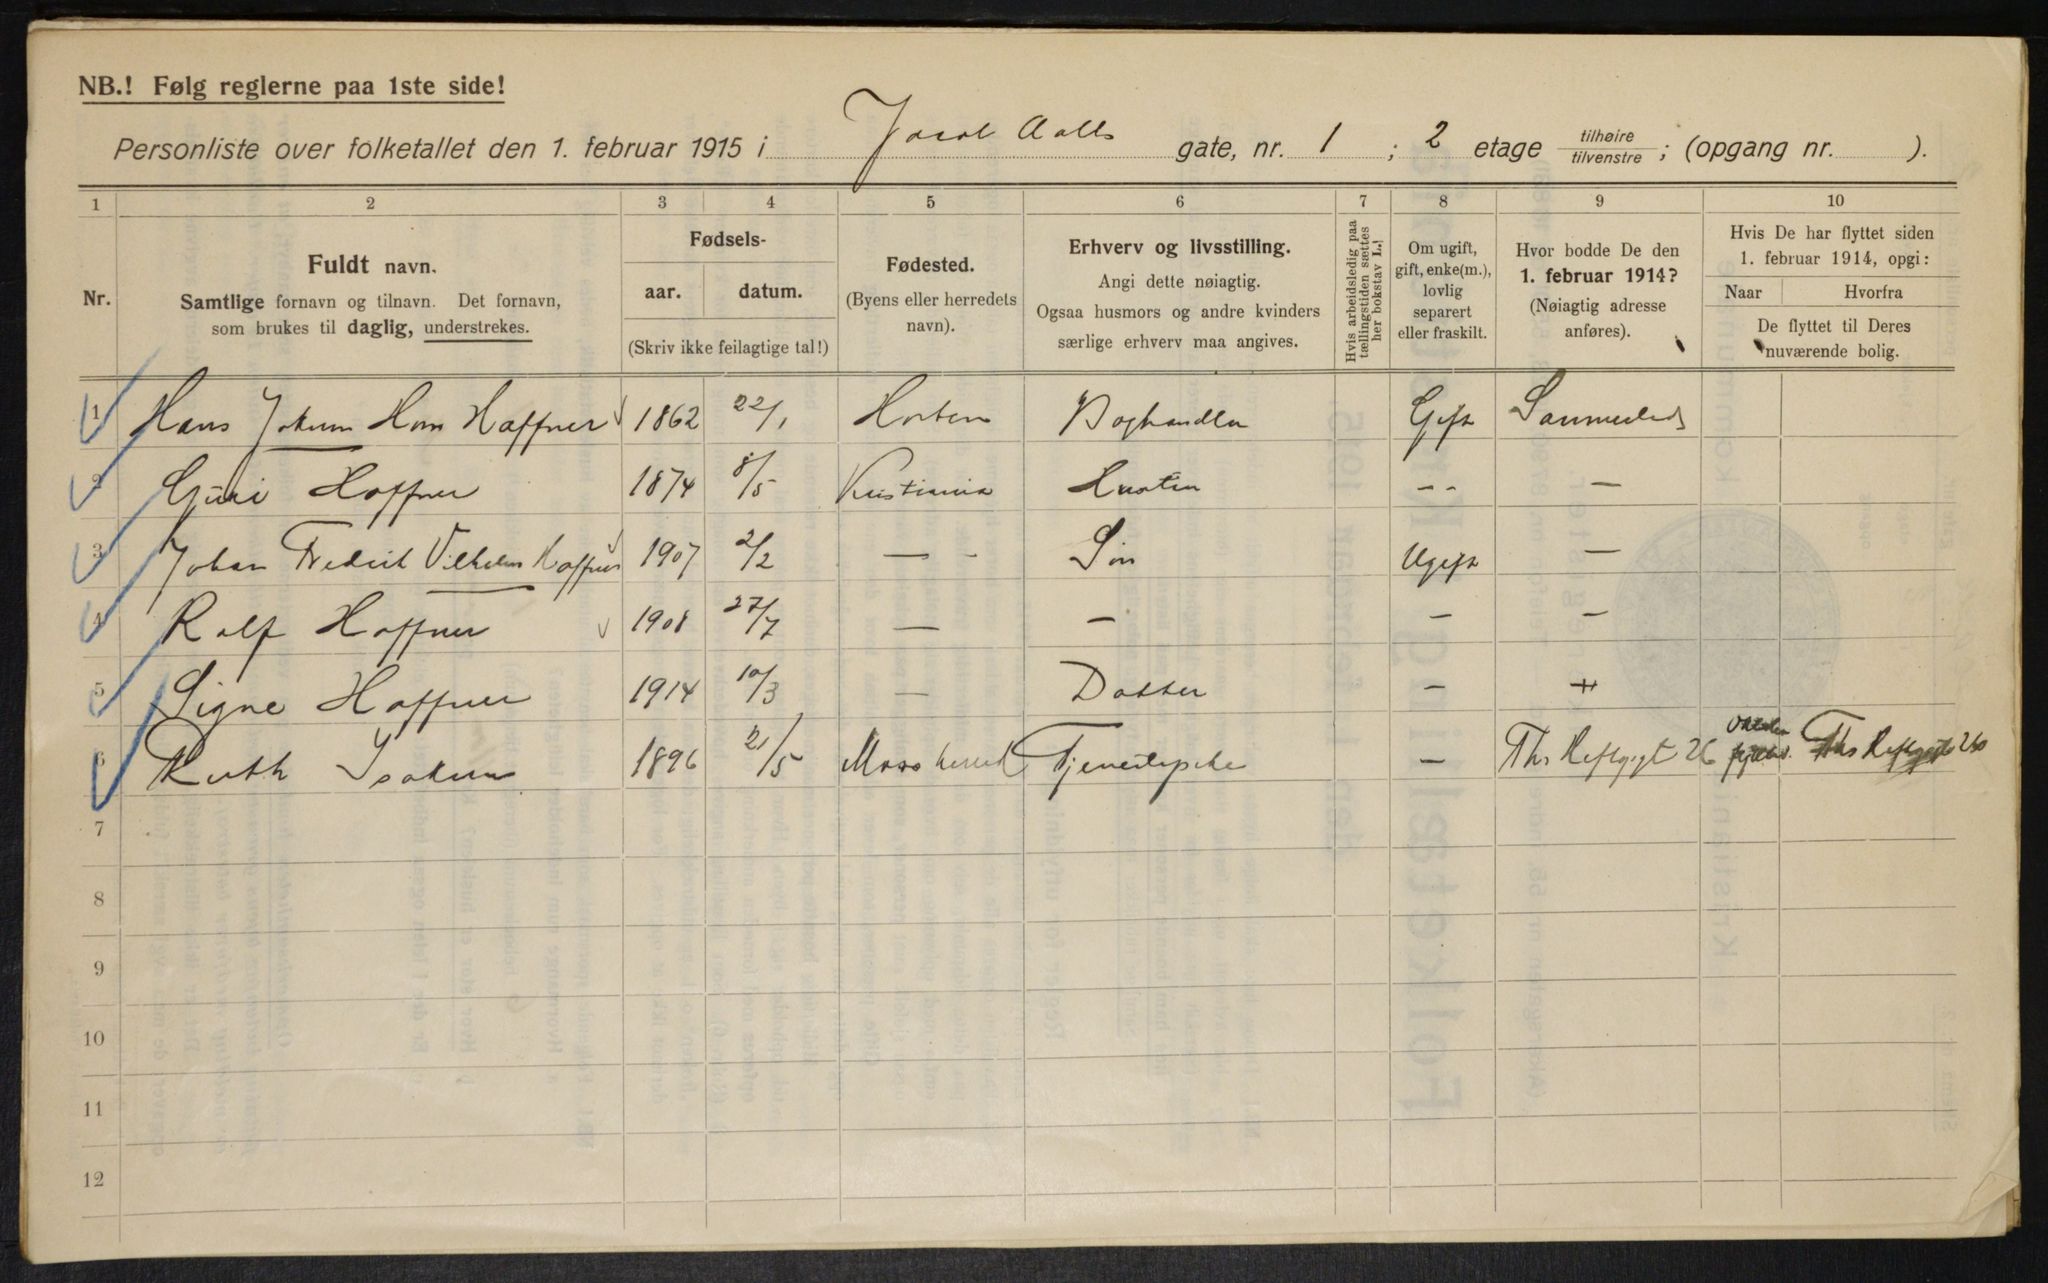 NB.! Følg reglerne paa 1ste side!
Personliste over folketallet den 1. februar 1915 i Jacob Aalls gate, nr. 1 ; 2 etage tilhøire / tilvenstre ; (opgang nr. ).
1 2 3 4 5 6 7 8 9 10
Nr.
Fuldt navn.
Samtlige fornavn og tilnavn. Det fornavn,
som brukes til daglig, understrekes.
Fødsels-
aar. datum.
(Skriv ikke feilagtige tal!)
Fødested.
(Byens eller herredets
navn).
Erhverv og livsstilling.
Angi dette nøiagtig.
Ogsaa husmors og andre kvinders
særlige erhverv maa angives.
Hvis arbeidsledig paa
tællingstiden sættes
her bokstav L.!
Om ugift,
gift, enke(m.),
lovlig
separert
eller fraskilt.
Hvor bodde De den
1. februar 1914?
(Nøiagtig adresse
anføres).
Hvis De har flyttet siden
1. februar 1914, opgi:
Naar Hvorfra
De flyttet til Deres
nuværende bolig.
1 Hans Jokum Horn Haffner 1862 22/1 Horten Boghandler Gift Sammesteds
2 Guri Haffner 1874 8/5 Kristiania Hustru -- —
3 Johan Fredrik Vilhelm Haffner 1907 2/2 — - Søn Ugift —
4 Rolf Haffner 1908 27/7 — — — —
5 Signe Haffner 1914 10/3 — Datter —
6 Ruth 1896 21/5 Moss herred Tjenestepike — Ths Heftyesgt 26 Ths Heftyesgt 26
7
8
9
10
11
12